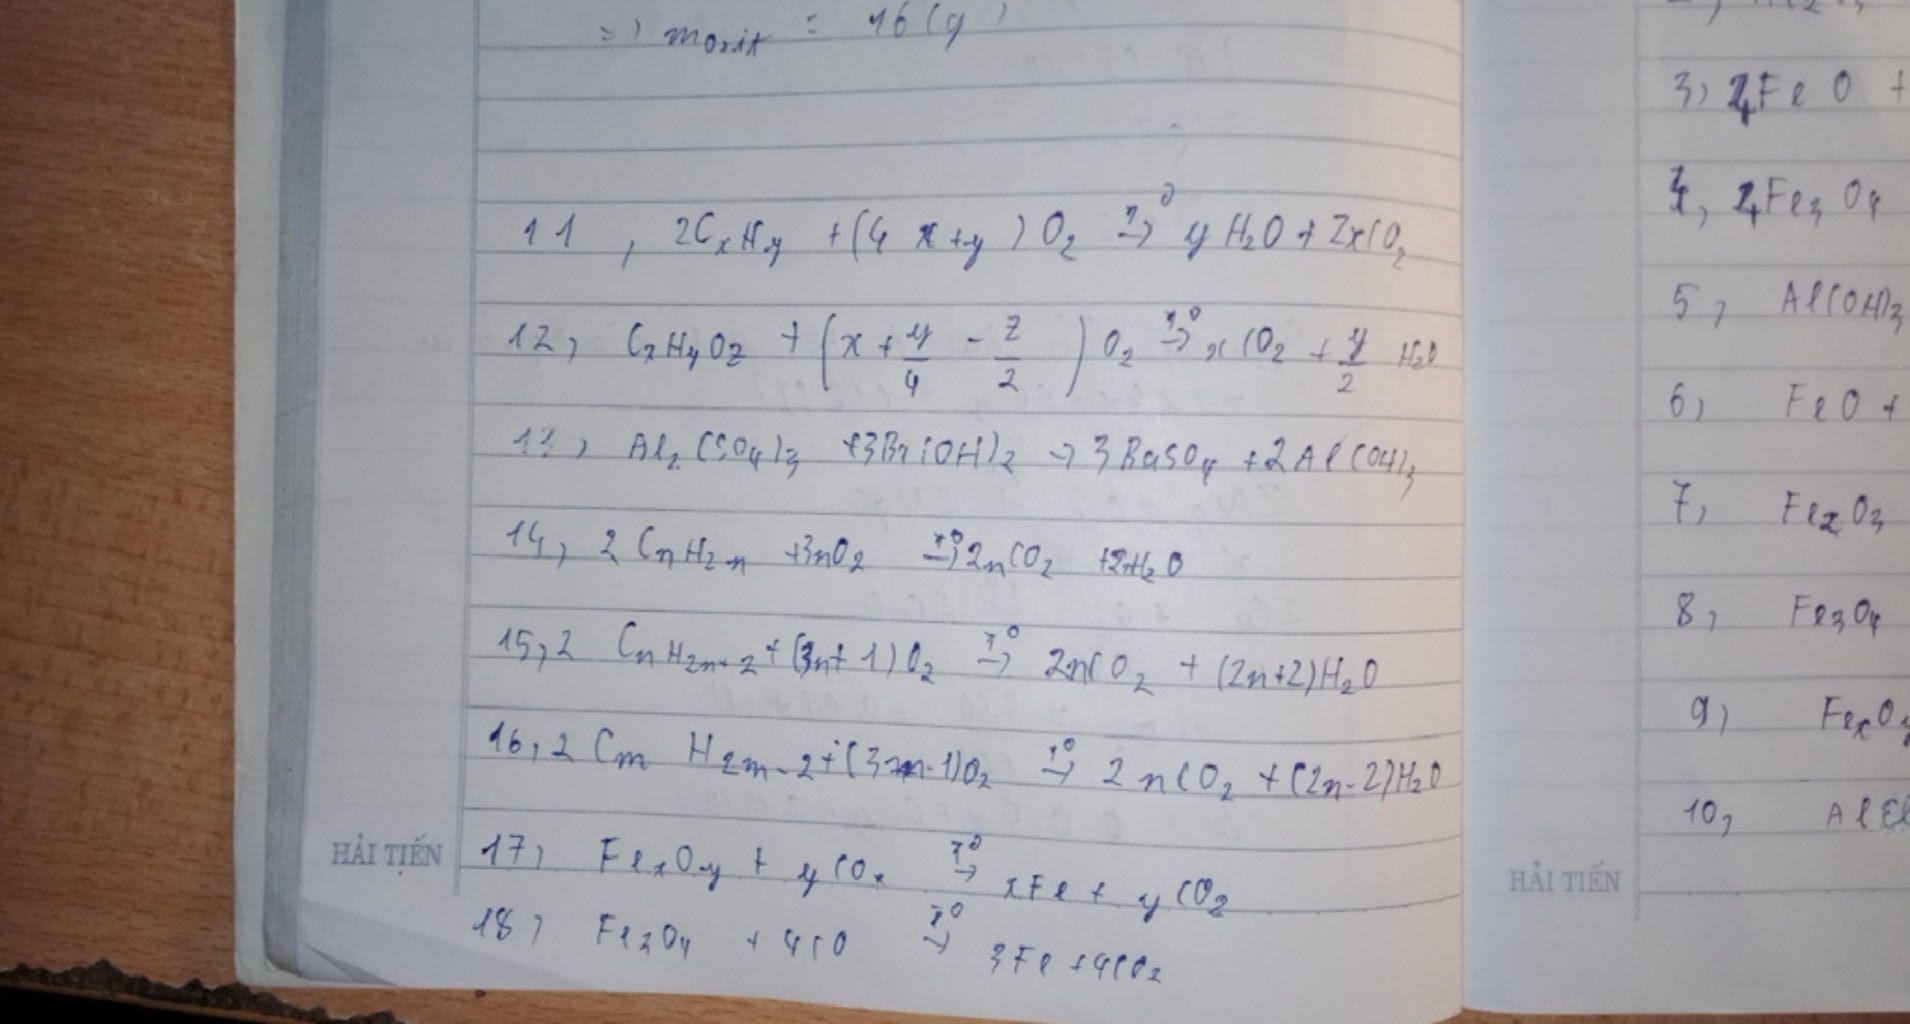 => m oxit = 16 (g)
11, 2CxHy + (4x+y) O2 t°→ yH2O + 2xCO2
12, CxHyOz + (x + y/4 - z/2) O2 t°→ xCO2 + y/2 H2O
13, Al2(SO4)3 + 3Ba(OH)2 → 3BaSO4 + 2Al(OH)3
14, 2CnH2n + 3nO2 t°→ 2nCO2 + 2nH2O
15, 2CnH2n+2 + (3n+1)O2 t°→ 2nCO2 + (2n+2)H2O
16, 2Cm H2m-2 + (3n-1)O2 t°→ 2nCO2 + (2n-2)H2O
17, FexOy + yCO t°→ xFe + yCO2
18, Fe3O4 + 4CO t°→ 3Fe + 4CO2
HẢI TIẾN
3, 4FeO +
4, 4Fe3O4
5, Al(OH)3
6, FeO +
7, Fe2O3
8, Fe3O4
9, FexOy
10, AlCl
HẢI TIẾN